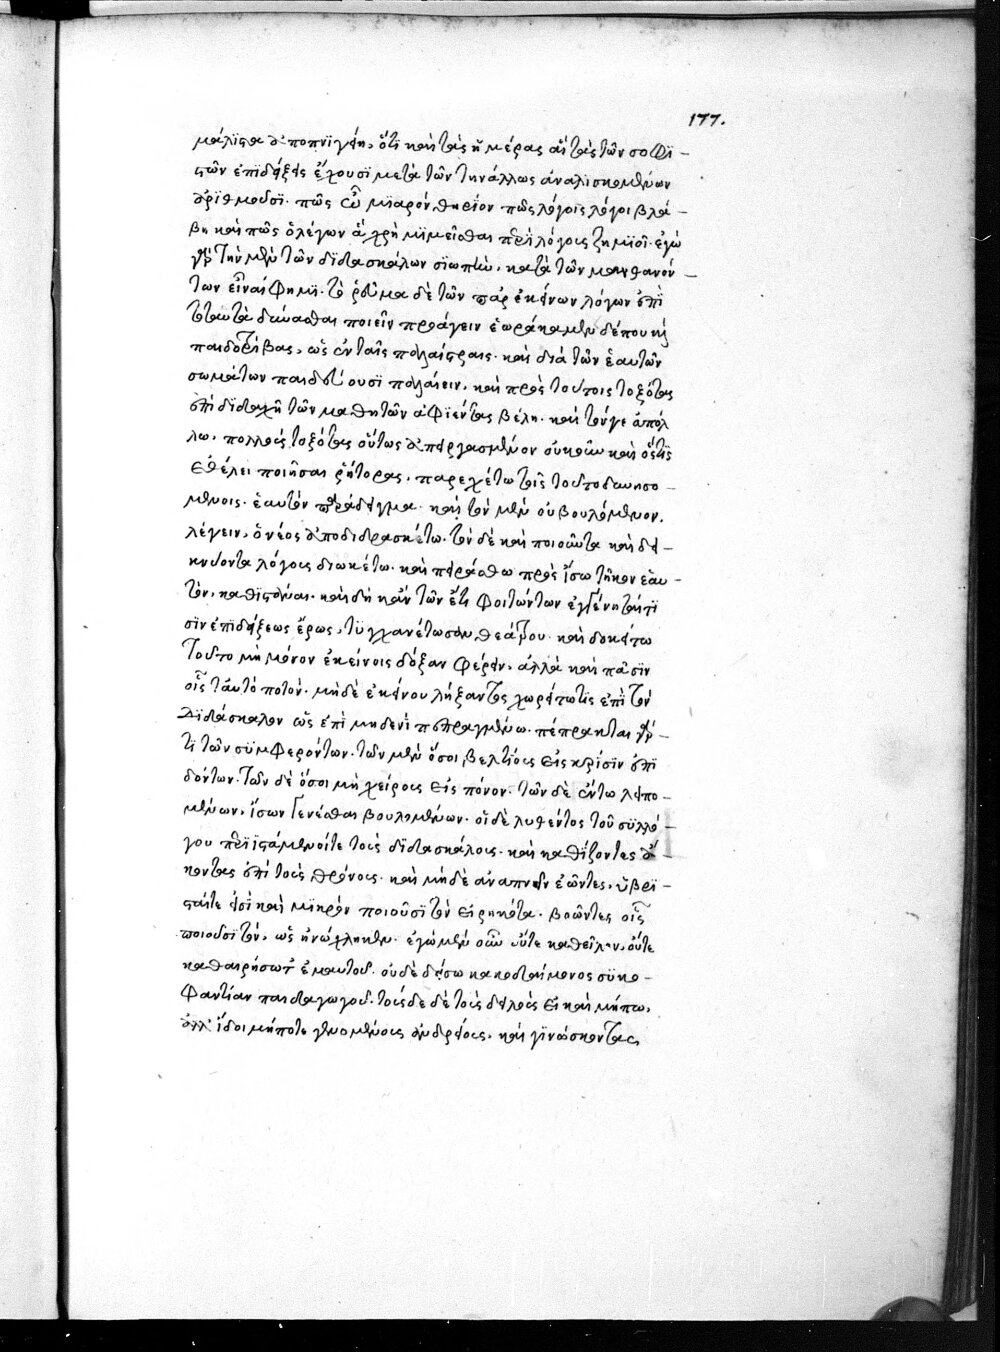 177.
μάλϊστα ἀποπνϊγείη, ὅτϊ καὶ τὰς ἡμέρας αἳ τὰς τῶν σοφϊ -
στῶν ἐπϊδείξεις ἔχουσϊ μετὰ τῶν τηνάλλως ἀναλισκομένων
ἀρϊθμοῦσϊ. πῶς ὦ μιαρὸν θηρίον πῶς λόγοις λόγοι βλά -
βη καὶ πῶς ὁ λέγων ἃ χρὴ μϊμεῖσθαι περὶ λόγους ζημϊοῖ. ἐγὼ
γὰρ τὴν μὲν τῶν δϊδασκάλων σϊωπὴν, κατὰ τῶν μανθανόν -
των εἶναί φημϊ. τὸ ῥεῦμα δὲ τῶν παρ ἐκείνων λόγων ἐπὶ
τὸ ταυτὰ δύνασθαι ποιεῖν προάγειν ἑωράκαμεν δέπου καὶ
παιδοτρίβας, ὡς ἐν ταῖς παλαίστραις. καὶ διὰ τῶν ἑαυτῶν
σωμάτων παιδεύουσϊ παλαίειν, καὶ πρὸς τούτοις τοξότας
ἐπὶ δϊδαχῇ τῶν μαθητῶν ἀφϊέντας βέλη. καὶ τόνγε ἀπόλ
λω, πολλοὺς τοξότας οὕτως ἀπειργασμένον οὐκοῦν καὶ ὅστϊς
ἐθέλει ποιῆσαι ῥήτορας, παρεχέτω τοῖς τοῦτο δυνησο -
μένοις. ἑαυτὸν παράδειγμα. καὶ τὸν μὲν οὐ βουλόμενον.
λέγειν, ὁ νέος ἀποδιδρασκέτω. τὸν δὲ καὶ ποιοῦντα καὶ δει -
κνύοντα λόγους διωκέτω. καὶ πειράσθω πρὸς ἴσω τῆκον ἑαυ -
τὸν, καθϊστάναι. καὶ δὴ κἂν τῶν ἔτϊ φοιτώντων ἐγγένηταί τϊ
σϊν ἐπϊδείξεως ἔρως, τϋγχανέτωσαν θεάτρου. καὶ δοκείτω
τοῦτο μὴ μόνον ἐκείνοις δόξαν φέρειν, ἀλλὰ καὶ πᾶσϊν
οἷς ταὐτὸ ποτόν. μηδὲ ἐκείνου λήξαντος χωρείτωτϊς ἐπὶ τὸν
δϊδάσκαλον ὡς ἐπὶ μηδενὶ πεπραγμένω. πέπρακται γάρ -
τϊ τῶν σϋμφερόντων. τῶν μὲν ὅσοι βελτίους εἰς κρίσϊν ἐπϊ
δόντων. τῶν δὲ ὅσοι μὴ χείρους εἰς πόνον. τῶν δὲ ἐν τω λειπο -
μένων, ἴσων γενέσθαι βουλομένων. οἱ δὲ λυθέντος τοῦ σϋλλό -
γου περϊϊστάμενοίτε τοὺς δϊδασκάλους. καὶ καθίζοντες ἄ -
κοντας ἐπὶ τοὺς θρόνους. καὶ μηδὲ ἀναπνεῖν ἐῶντες, ὑβρϊ -
σταίτε εἰσὶ καὶ μϊκρὸν ποιοῦσϊ τὸν εἰρηκότα. βοῶντες οἷς
ποιοῦσϊ τὸν, ὡς ἠνώχληκεν. ἐγὼ μὲν οὖν οὔτε καθεῖλον, οὔτε
καθαιρήσω τ ἐμαυτοῦ. οὐδὲ δείσω κακοδαίμονος σϋκο -
φαντίαν παιδαγωγοῦ. τούσδε δὲ τοὺς δειλοὺς εἰ καὶ μήπω,
ἀλλ ἴδοι μήποτε γενομένους ἀνδρείους, καὶ γϊνώσκοντας